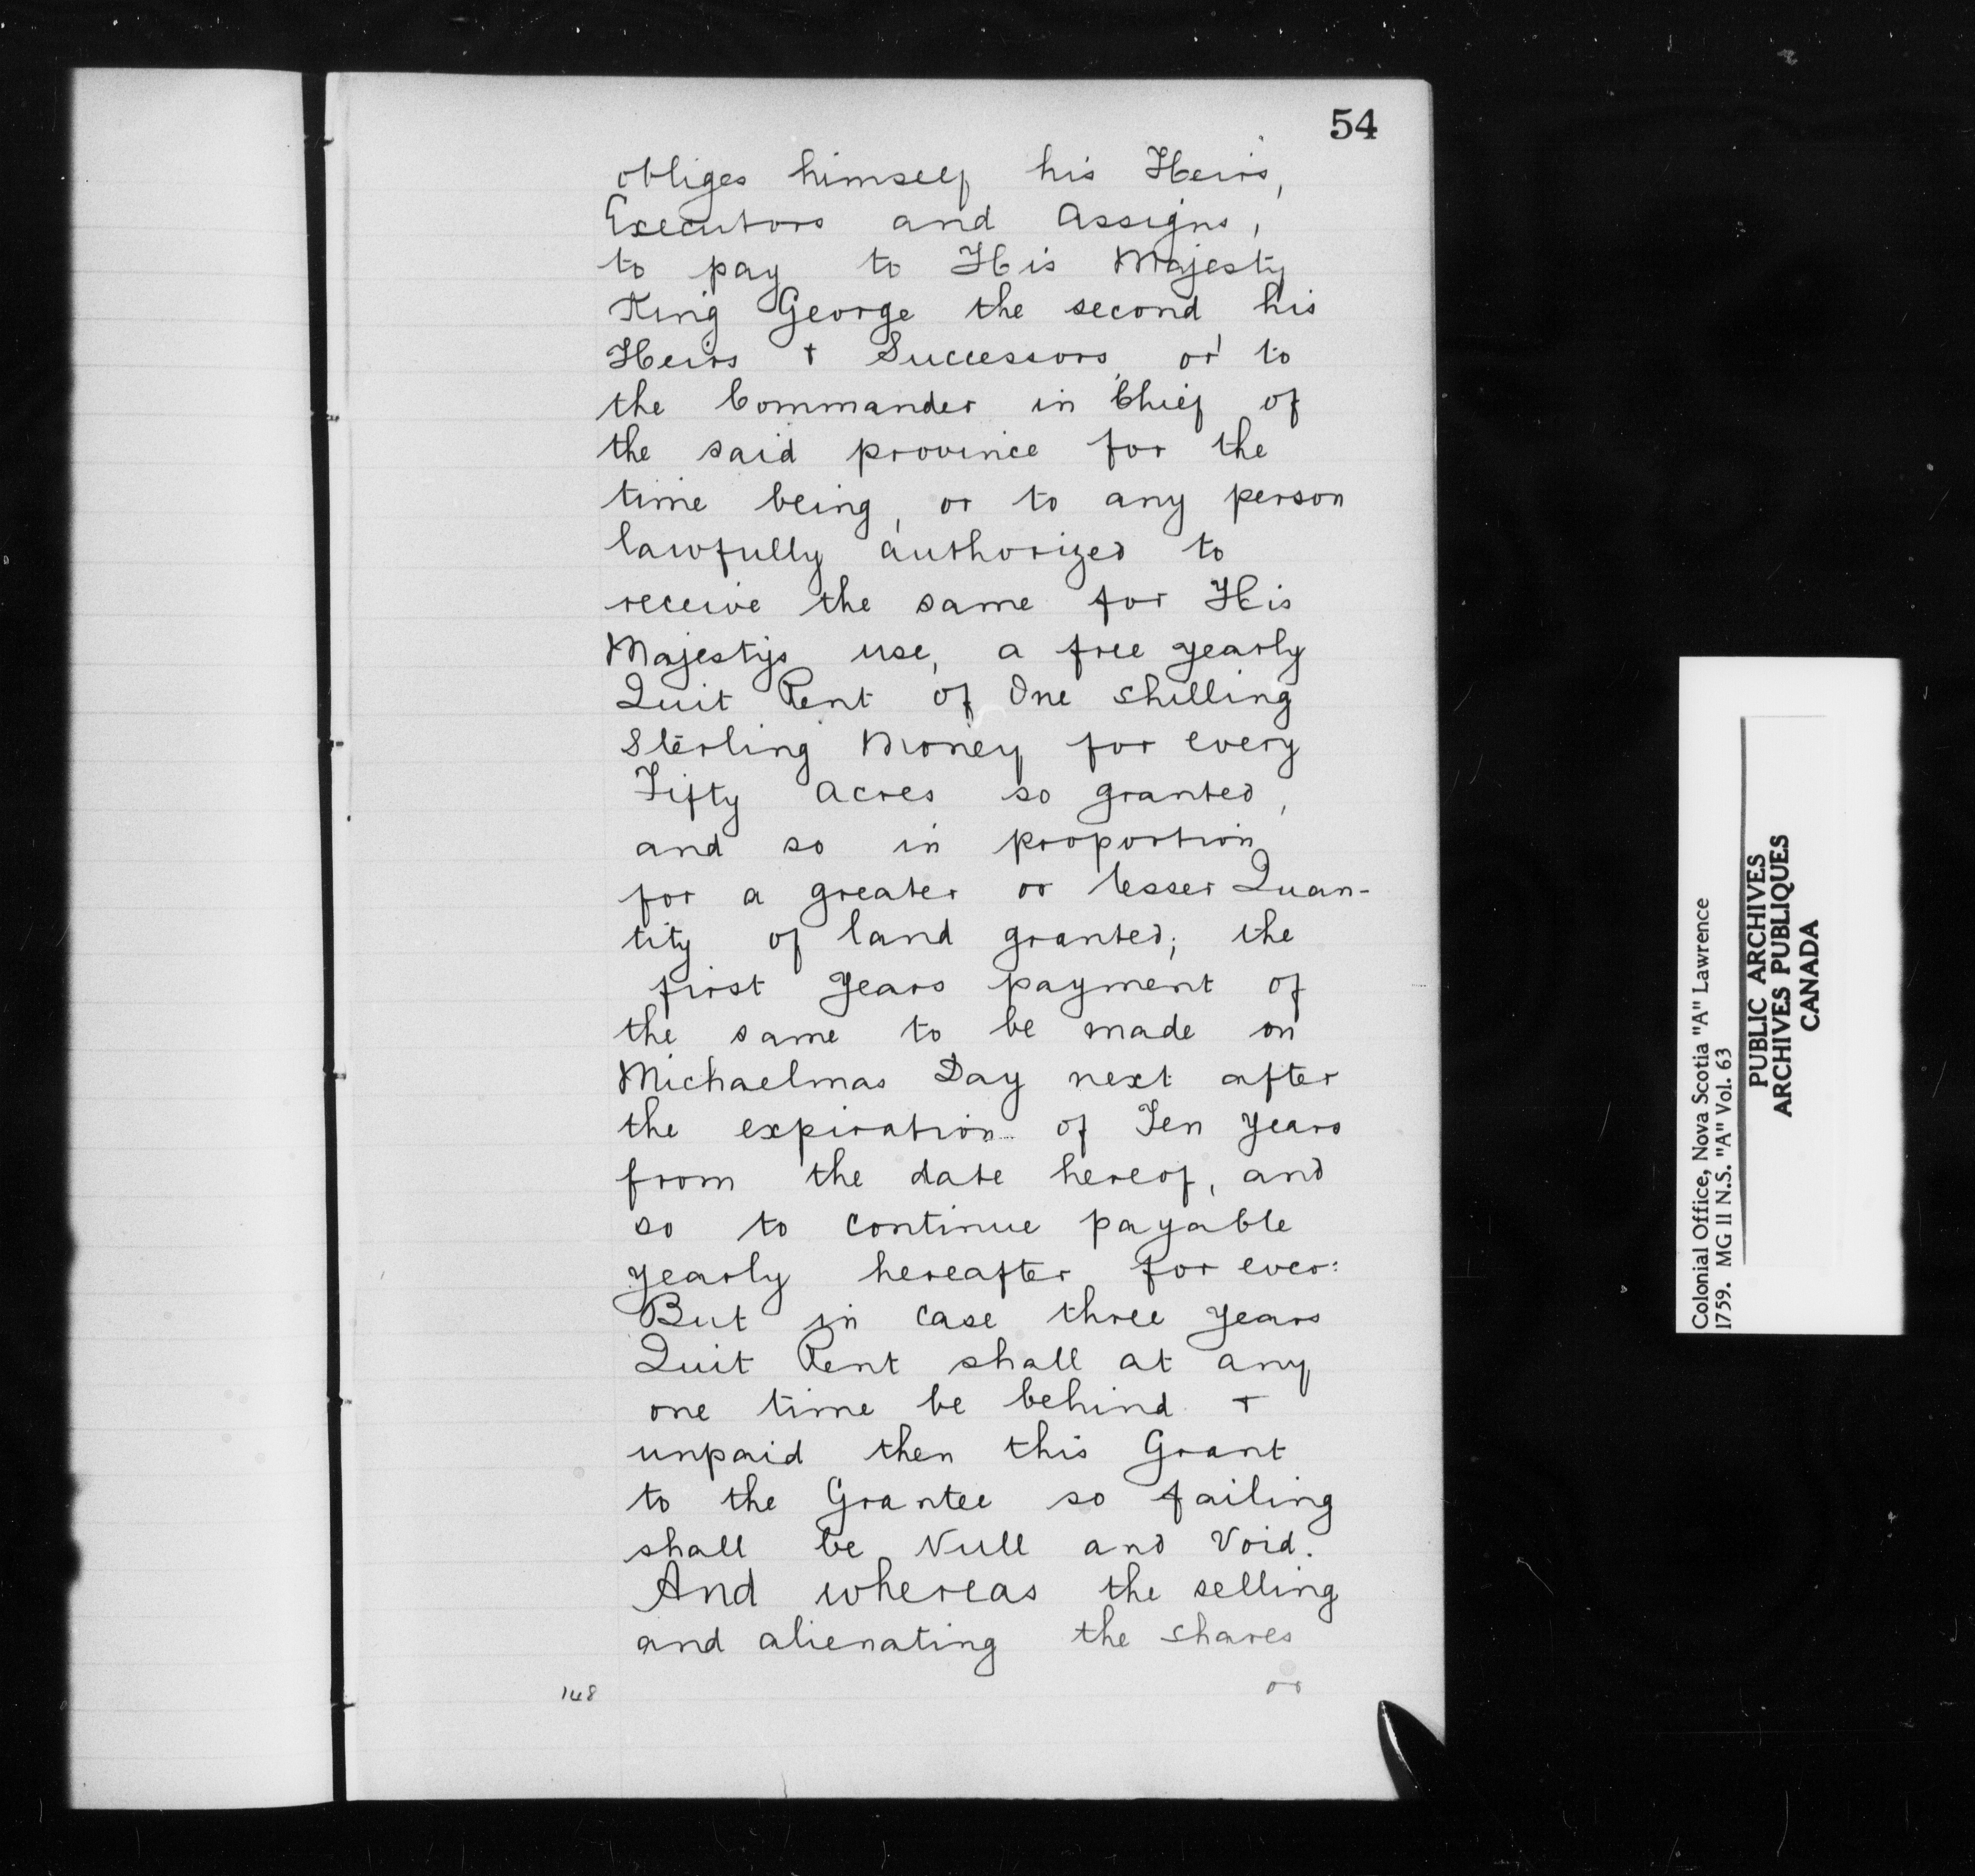 54
obliges himself his Heirs,
Executors and Assigns,
to pay to His Majesty
King George the second his
Heirs + Successors, or to
the Commander in Chief of
the said province for the
time being, or to any person
lawfully authorized to
receive the same for His
Majestys use, a free yearly
Quit Rent of One shilling
Sterling Money for every
Fifty Acres so granted,
and so in proportion
for a greater or lesser Quan-
tity of land granted; the
first years payment of
the same to be made on
Michaelmas Day next after
the expiration of Ten years
from the date hereof, and
so to continue payable
yearly hereafter for ever:
But in case three years
Quit Rent shall at any
one time be behind +
unpaid then this Grant
to the Grantee so failing
shall be Null and Void.
And whereas the selling
and alienating the shares
or
148
Colonial Office, Nova Scotia "A" Lawrence
1759. MG 11 N.S. "A" Vol. 63
PUBLIC ARCHIVES
ARCHIVES PUBLIQUES
CANADA